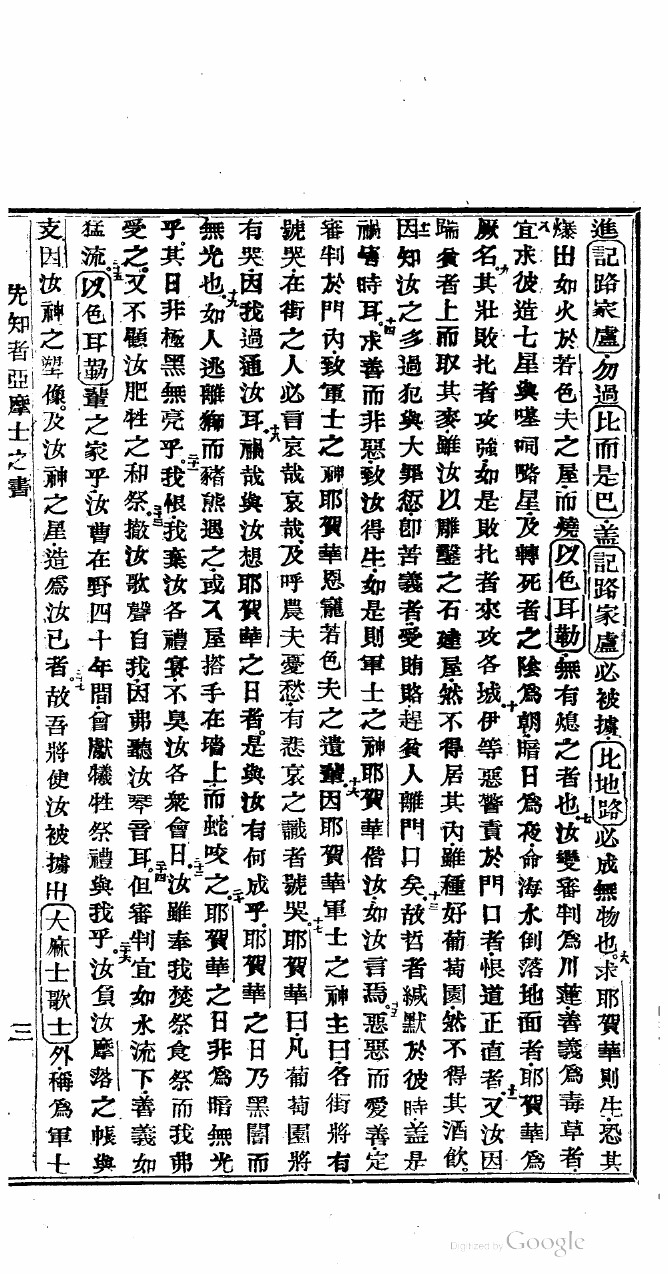 進記路家盧勿過比而是巴盖記路家盧必被擄比地路必成無物也六求耶賀華則生恐其
爆出如火於若色夫之屋而燒以色耳勒無有熄之者也七汝變審判為川蓮善義為毒草者
八宜求彼造七星與噻嗣略星及轉死者之陰為朝暗日為夜命海水倒落地面者耶賀華為
厥名九其壯敗扎者攻強如是敗扎者來攻各城十伊等惡警責於門口者恨道正直者十一又汝因
踹貧者上而取其麥雖汝以雕鑿之石建屋然不得居其內雖種好葡萄園然不得其酒飲
十二因知汝之多過犯與大罪愆卽苦義者受賄賂趕貧人離門口矣十三故哲者緘默於彼時盖是
禍害時耳十四求善而非惡致汝得生如是則軍士之神耶賀華偕汝如汝言焉十五惡惡而愛善定
審判於門內致軍士之神耶賀華恩寵若色夫之遺輩十六因耶賀華軍士之神主曰各街將有
號哭在街之人必言哀哉哀哉及呼農夫憂愁有悲哀之識者號哭十七耶賀華曰凡葡萄園將
有哭因我過通汝耳十八禍哉與汝想耶賀華之日者是與汝有何成乎耶賀華之日乃黑闇而
無光也十九如人逃離獅而豬熊遇之或入屋搭手在墙上而蛇咬之二十耶賀華之日非為暗無光
乎其日非極黑無亮乎二十一我恨我棄汝各禮宴不臭汝各衆會日二十二汝雖奉我焚祭食祭而我弗
受之又不顧汝肥牲之和祭二十三撤汝歌聲自我因弗聽汝琴音耳二十四但審判宜如水流下善義如
猛流二十五以色耳勒輩之家乎汝曹在野四十年間會獻犧牲祭禮與我乎二十六汝負汝摩落之帳與
支因汝神之塑像及汝神之星造爲汝已者二十七故吾將使汝被擄出大麻士歌士外稱爲軍士
先知者亞摩士之書
三
Digitized by Google